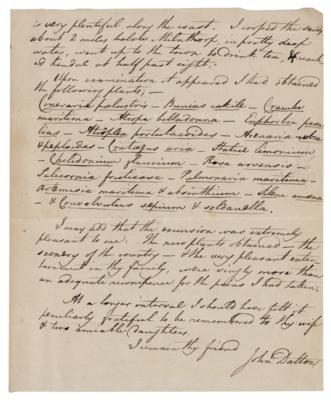 is very plentiful along the coast. I crossed the sands
about 2 miles below Milnthorp, in pretty deep
water, went up to the town to drink tea, & reach
ed Kendal at half past eight.
Upon examination it appeared I had obtained
the following plants; —
Cineraria palustris — Bunias cakile — Crambe
maritima — Atropa belladonna — Euphorbia para
lias — Atriplex portulacoides — Arenaria rubra
& peploides — Cratægus aria — Statice limonium
— Chelidonium glaucium — Rosa arvensis —
Salicornia fruticosa — Pulmonaria maritima —
Artemisia maritima & absinthium — Silene amoena
— & Convolvulus sepium & soldanella.
I may add that the excursion was extremely
pleasant to me: The new plants obtained — the
scenery of the country — & the very pleasant enter
tainment in thy family, were singly more than
an adequate recompence for the pains I had taken.
At a longer interval I should have felt it
peculiarly grateful to be remembered to thy wife
& two amiable daughters.
I remain thy friend
John Dalton